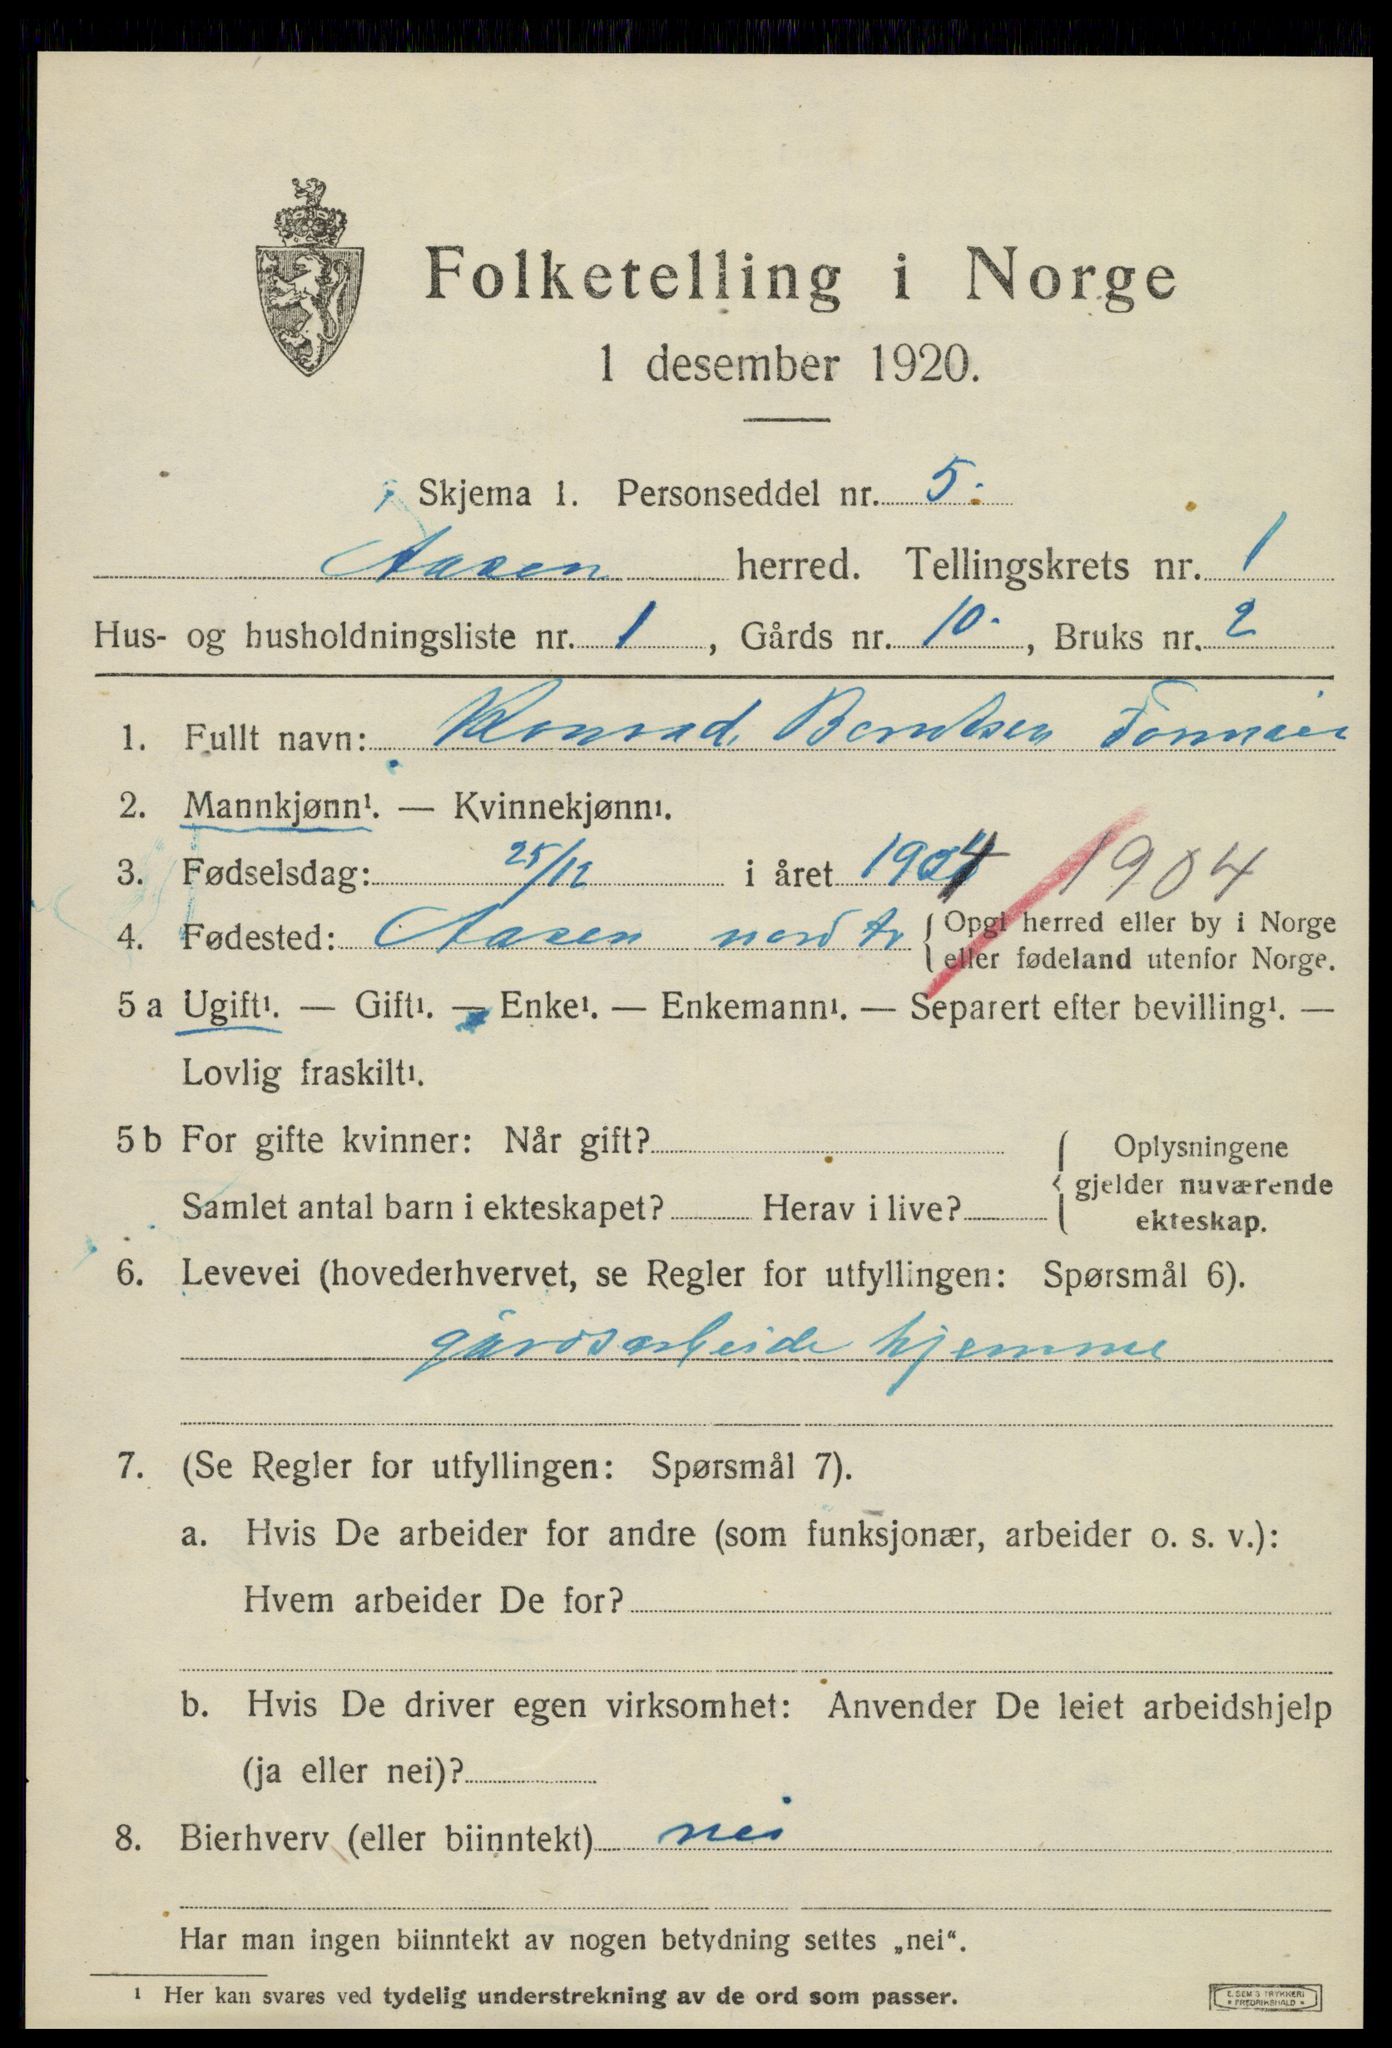 Folketelling i Norge
1 desember 1920.
Skjema 1. Personseddel nr. 5.
Aasen herred. Tellingskrets nr. 1
Hus- og husholdningsliste nr. 1, Gårds nr. 10., Bruks nr. 2
1. Fullt navn: Konrad Berntsen
2. Mannkjønn¹. — Kvinnekjønn¹.
3. Fødselsdag: 25/12 i året 1904 1904
4. Fødested: Aasen nord tr { Opgi herred eller by i Norge
eller fødeland utenfor Norge.
5 a Ugift¹. — Gift¹. — Enke¹. — Enkemann¹. — Separert efter bevilling¹. —
Lovlig fraskilt¹.
5 b For gifte kvinner: Når gift? { Oplysningene
gjelder nuværende
Samlet antal barn i ekteskapet? Herav i live? ekteskap.
6. Levevei (hovederhvervet, se Regler for utfyllingen: Spørsmål 6).
gårdsarbeide hjemme
7. (Se Regler for utfyllingen: Spørsmål 7).
a. Hvis De arbeider for andre (som funksjonær, arbeider o. s. v.):
Hvem arbeider De for?
b. Hvis De driver egen virksomhet: Anvender De leiet arbeidshjelp
(ja eller nei)?
8. Bierhverv (eller biinntekt) nei
Har man ingen biinntekt av nogen betydning settes „nei“.
¹ Her kan svares ved tydelig understrekning av de ord som passer.
E. SEM'S TRYKKERI
* FREDRIKSHALD *